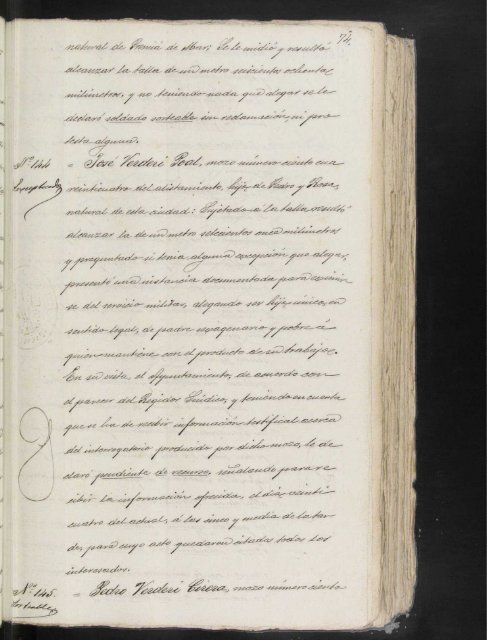 74.
natural de Premiá de Mar; Se le midió y resultó
alcanzar la talla de un metro seiscientos ochenta
milímetros, y no teniendo nada que alegar se le
declaró soldado sorteado sin reclamacion, ni pro-
testa alguna.
Nº 144
Exceptuado
= José Verderi Goal, mozo número ciento cua
reinticuatro del alistamiento, hijo de Pedro y Rosa,
natural de esta ciudad: Sujetado á la talla resultó
alcanzar la de un metro setecientos once milímetros
y preguntado si tenia alguna excepcion que alegar,
presentó una instancia documentada para eximir-
se del servicio militar, alegando ser hijo único, en
sentido legal, de padre sexagenario y pobre á
quien mantiene con el producto de su trabajo.
En su vista, el Ayuntamiento, de acuerdo con
el parecer del Regidor Síndico, y teniendo en cuenta
que se ha de recibir informacion testifical acerca
del interrogatorio producido por dicho mozo, le de-
claró pendiente de recurso, señalando para re
cibir la informacion ofrecida, el dia veinti
cuatro del actual, á las cinco y media de la tar
de, para cuyo acto quedaron citados todos los
interesados.
Nº 145.
Sorteable
= Pedro Verderi Cirera, mozo número ciento